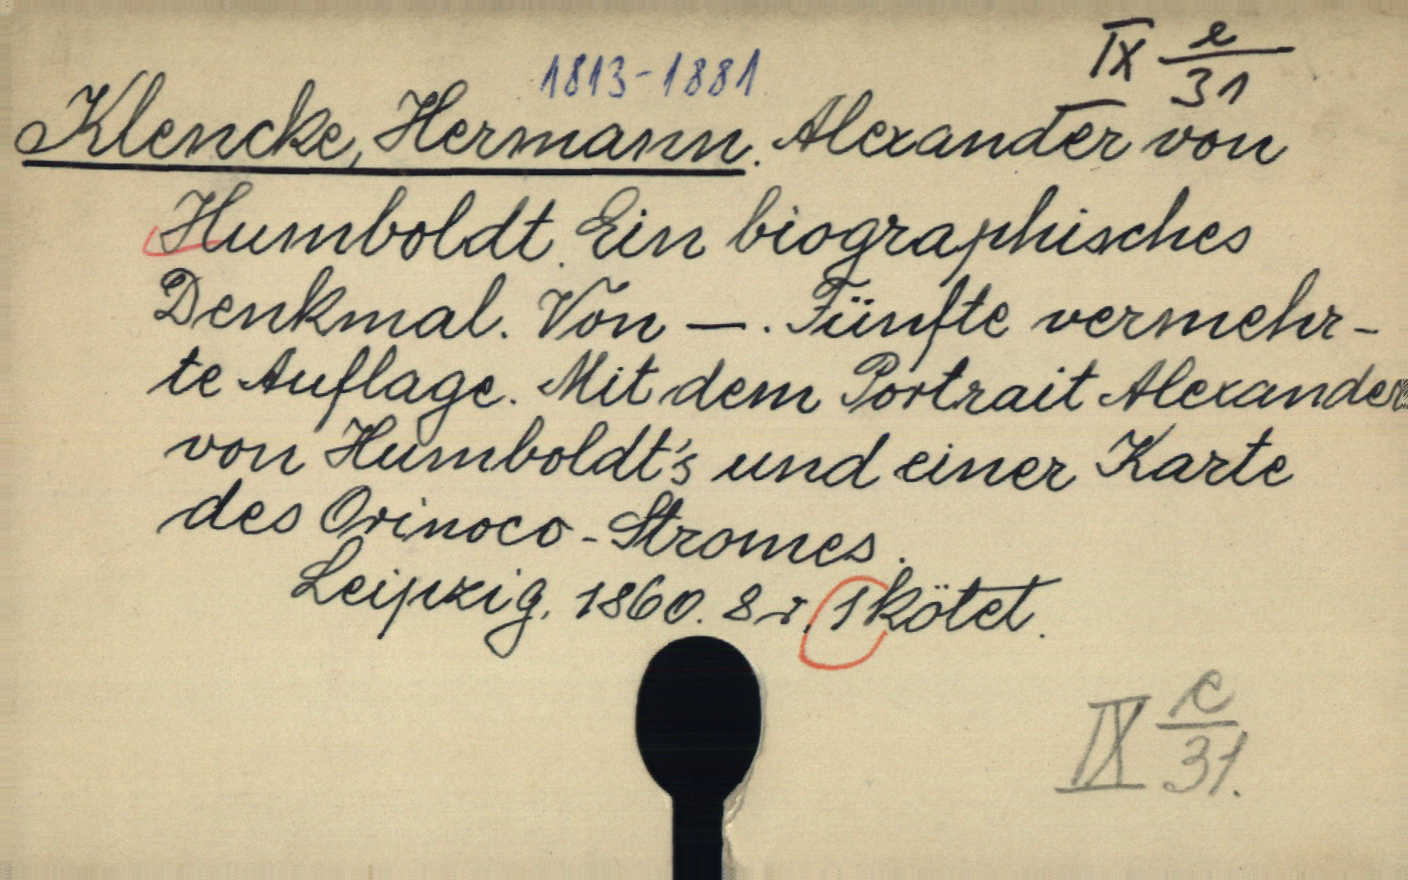 1813-1881
IX e/31
Klencke, Hermann. Alexander von
Humboldt. Ein biographisches
Denkmal. Von —. Fünfte vermehr-
te Auflage. Mit dem Portrait Alexander
von Humboldt's und einer Karte
des Orinoco-Stromes.
Leipzig, 1860. 8r, 1 kötet.
IX e/31.